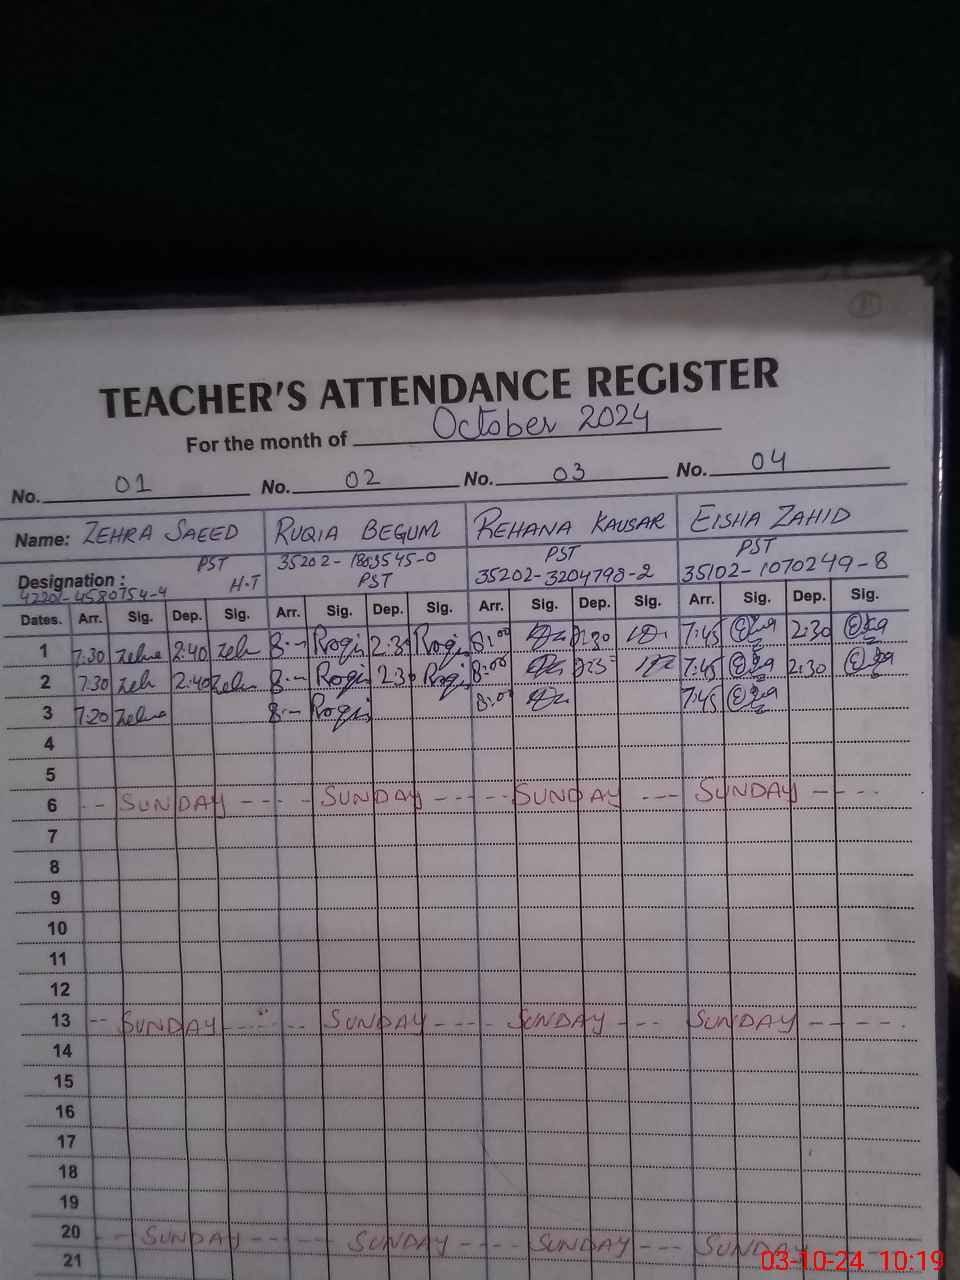 TEACHER'S ATTENDANCE REGISTER
For the month of October 2024
No. 01 No. 02 No. 03 No. 04
Name: ZEHRA SAEED RUQIA BEGUM REHANA KAUSAR EISHA ZAHID
PST 35202-1803545-0 PST PST
Designation: H.T PST 35202-3204798-2 35102-1070249-8
42201-4580754-4
Dates. Arr. Sig. Dep. Sig. Arr. Sig. Dep. Sig. Arr. Sig. Dep. Sig. Arr. Sig. Dep. Sig.
1 7:30 2:40 8:— 2:30 8:00 2:30 7:45 2:30
2 7:30 2:40 8:— 2:30 8:00 7:45 2:30
3 7:20 8:— 8:00 7:45
4
5
6 SUNDAY SUNDAY SUNDAY SUNDAY
7
8
9
10
11
12
13 SUNDAY SUNDAY SUNDAY SUNDAY
14
15
16
17
18
19
20 SUNDAY SUNDAY SUNDAY SUNDAY
21
03-10-24 10:19